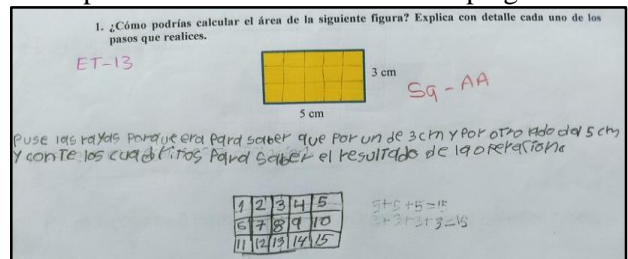 1. ¿Cómo podrías calcular el área de la siguiente figura? Explica con detalle cada uno de los
pasos que realices.
ET-13
3 cm
Sq - AA
5 cm
Puse las rayas porque era para saber que por un de 3cm y por otro lado da 5 cm
y conte los cuadritos para saber el resultado de la operacion
1 2 3 4 5
6 7 8 9 10
11 12 13 14 15
5+5+5=15
3+3+3+3=15